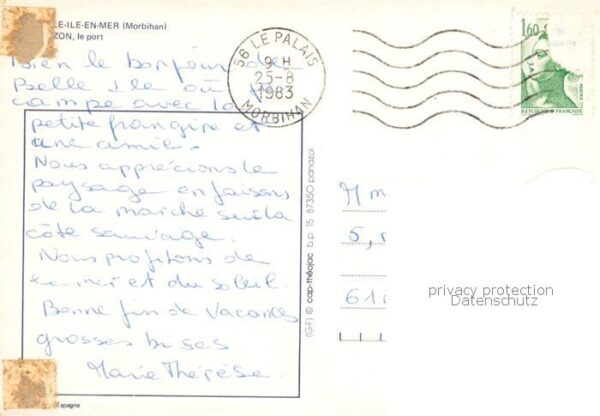 LE-ILE-EN-MER (Morbihan)
ZON, le port
Bien le bonjour de
Belle Ile où
campe avec la
petite frangine et
une amie.
Nous apprécions le
paysage en faisons
de la marche sur la
côte sauvage.
Nous profitons de
la mer et du soleil.
Bonne fin de Vacances
grosses bises
Marie Thérèse.
Espagne
(G-F) © cap-théojac b.p. 15 87350 panazol
56 LE PALAIS
9 H
25-8
1983
MORBIHAN
1,60
REPUBLIQUE FRANÇAISE
Mm
5,
61
privacy protection
Datenschutz